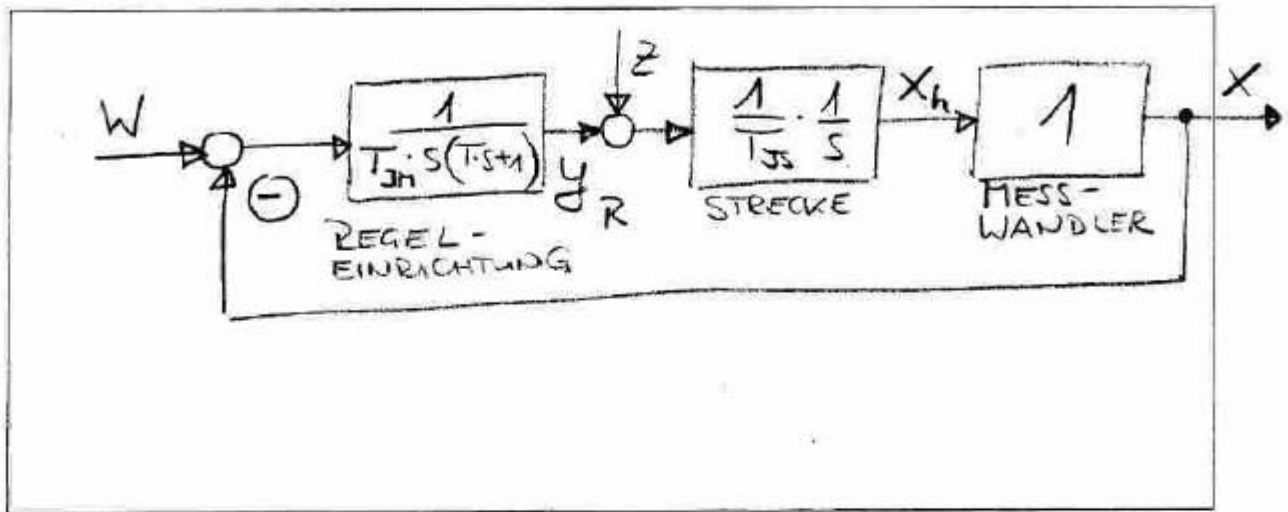 W
⊖
1
T_JM · S(T·S+1)
REGEL-
EINRICHTUNG
y_R
Z
1 / T_JS · 1 / S
STRECKE
X_h
1
MESS-
WANDLER
X